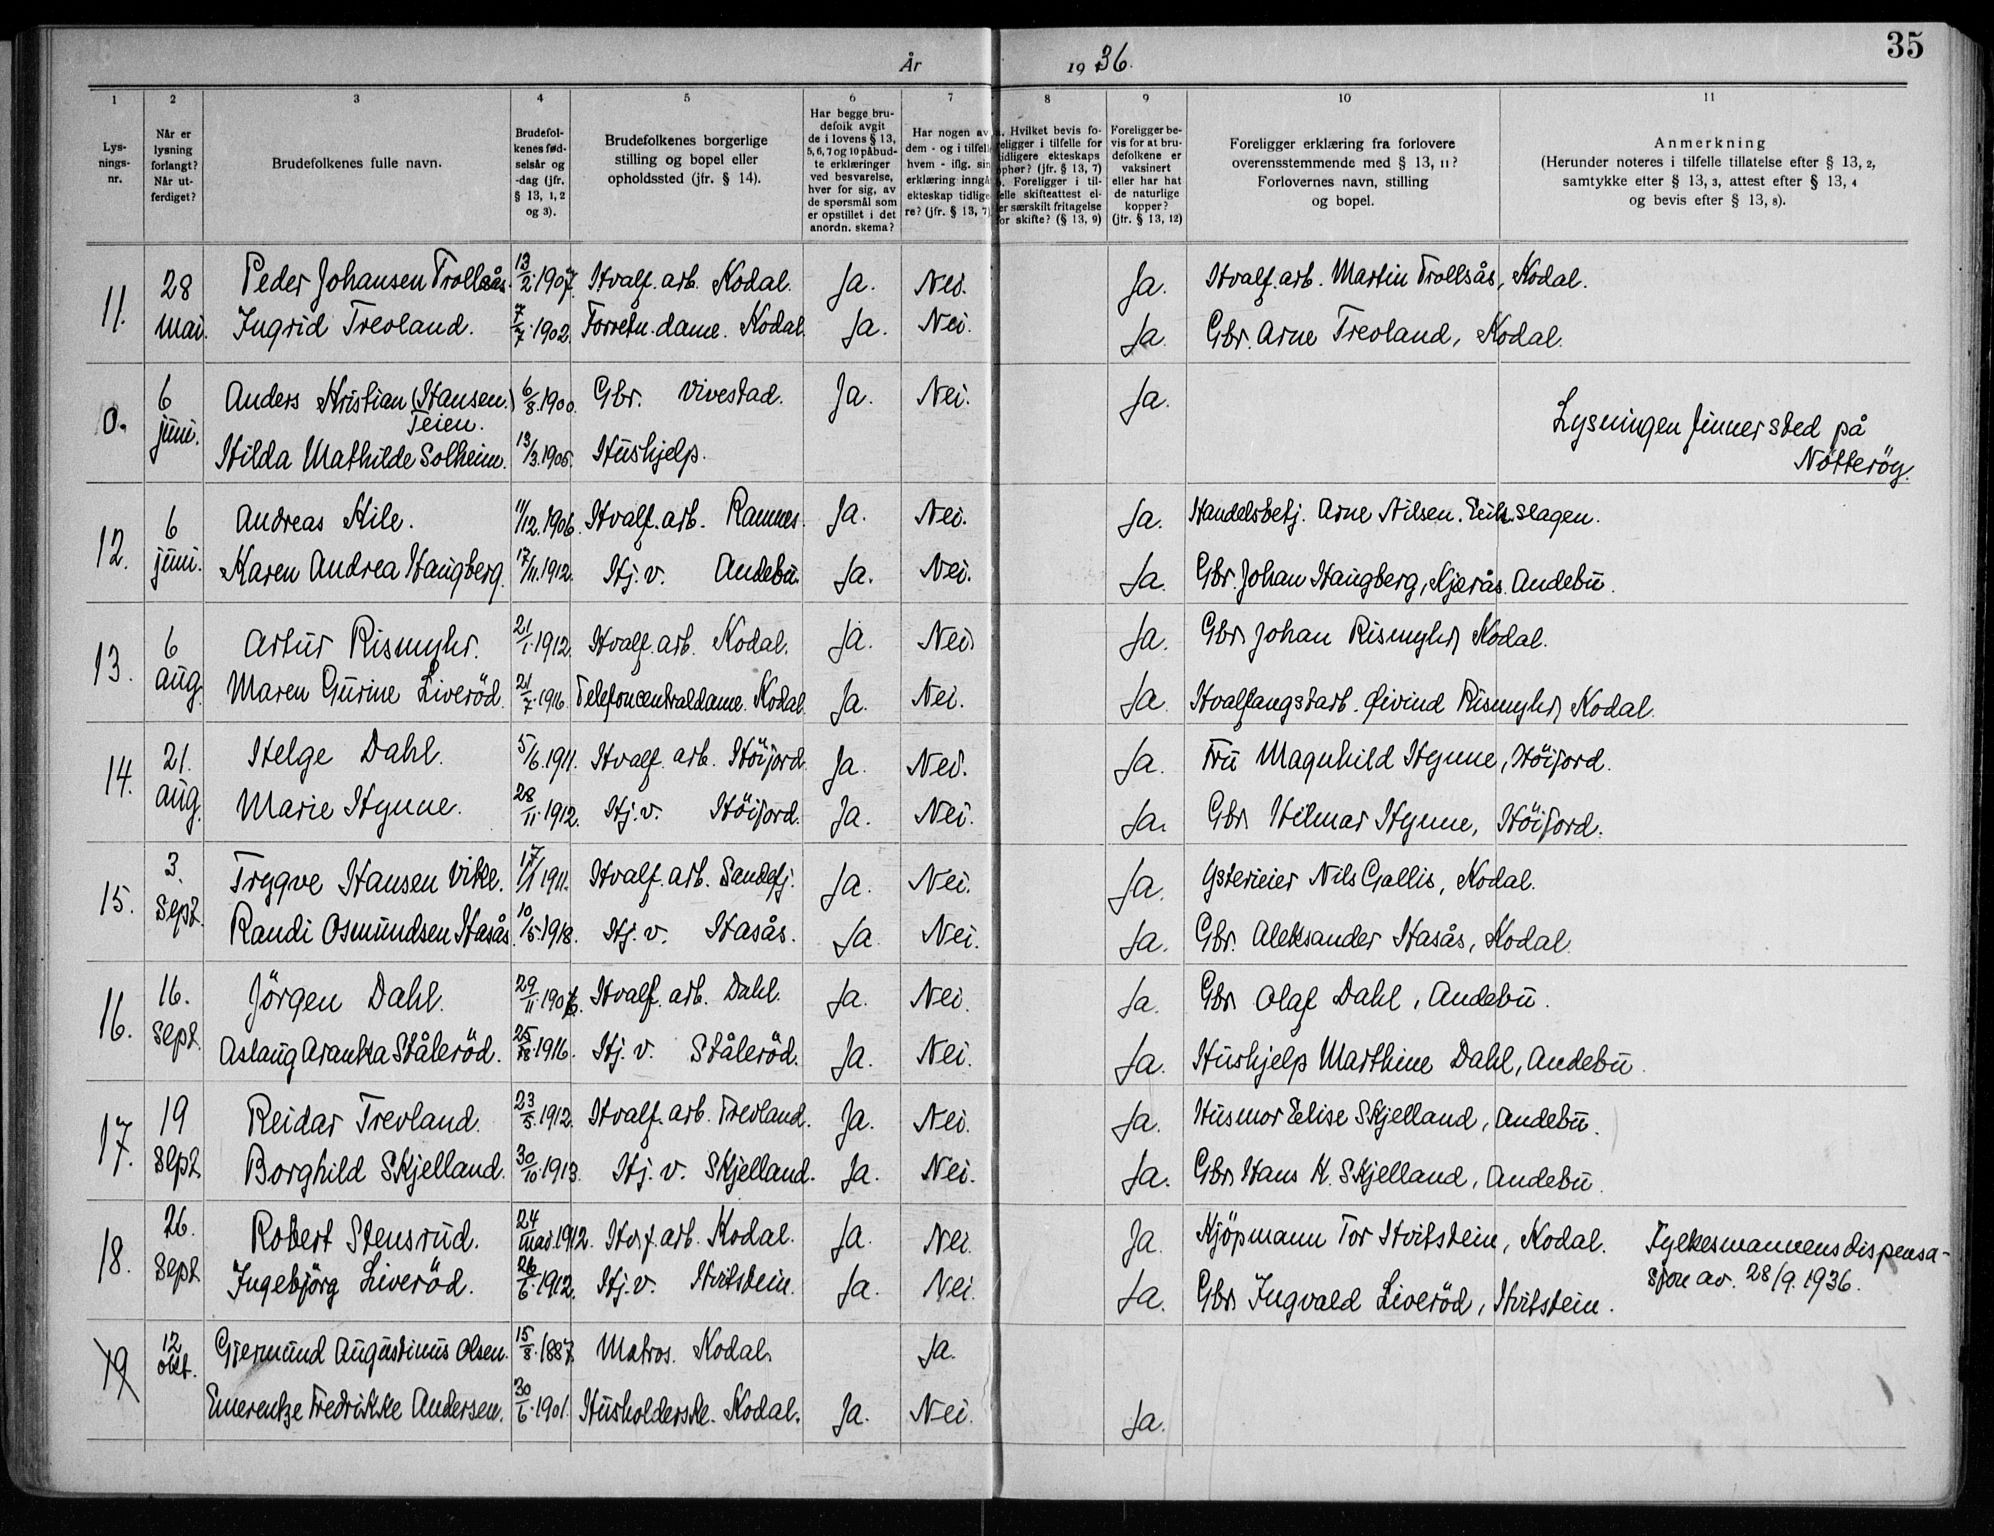 35
År 1936.
1 2 3 4 5 6 7 8 9 10 11
Lysningsnr.
Når er lysning forlangt? Når utferdiget?
Brudefolkenes fulle navn.
Brudefolkenes fødselsår og -dag (jfr. § 13, 1, 2 og 3).
Brudefolkenes borgerlige stilling og bopel eller opholdssted (jfr. § 14).
Har begge brudefolk avgit de i lovens § 13, 5, 6, 7 og 10 påbudte erklæringer ved besvarelse, hver for sig, av de spørsmål som er opstillet i det anordn. skema?
Har nogen av dem - og i tilfelle hvem - iflg. sin erklæring inngå ekteskap tidligere? (jfr. § 13, 7)
a. Hvilket bevis foreligger i tilfelle for tidligere ekteskaps ophør? (jfr. § 13, 7) b. Foreligger i tilfelle skifteattest eller særskilt fritagelse for skifte? (§ 13, 9)
Foreligger bevis for at brudefolkene er vaksinert eller har hat de naturlige kopper? (jfr. § 13, 12)
Foreligger erklæring fra forlovere overensstemmende med § 13, 11? Forlovernes navn, stilling og bopel.
Anmerkning (Herunder noteres i tilfelle tillatelse efter § 13, 2, samtykke efter § 13, 3, attest efter § 13, 4 og bevis efter § 13, 8).
11. 28 mai. Peder Johansen Trollsås. 13/2.1907. Hvalf. arb. Kodal. Ja. Nei. Ja. Hvalf. arb. Martin Trollsås, Kodal.
Ingrid Trevland. 7/7.1902. Forretn. dame. Kodal. Ja. Nei. Ja. Gbr. Arne Trevland, Kodal.
0. 6 juni. Anders Kristian (Hansen.) Teien. 6/8.1900. Gbr. Vivestad. Ja. Nei. Ja.
Hilda Mathilde Solheim. 13/3.1905. Hushjelp. Lysningen finner sted på
Nötteröy.
12. 6 juni. Andreas Kile. 11/12.1906. Hvalf. arb. Ramnes. Ja. Nei. Ja. Handelsbetj. Arne Nilsen. Slagen.
Karen Andrea Haugberg. 17/11.1912. Hj. v. Andebu. Ja. Nei. Ja. Gbr. Johan Haugberg, Kjærås. Andebu.
13. 6 aug. Artur Rismyhr. 21/1.1912. Hvalf. arb. Kodal. Ja. Nei. Ja. Gbr. Johan Rismyhr, Kodal.
Maren Gurine Liveröd. 21/7.1916. Telefoncentraldame. Kodal. Ja. Nei. Ja. Hvalfangstarb. Øivind Rismyhr, Kodal.
14. 21. aug. Helge Dahl. 5/6.1911. Hvalf. arb. Höijord. Ja. Nei. Ja. Fru Magnhild Hynne, Höijord.
Marie Hynne. 28/11.1912. Hj. v. Höijord. Ja. Nei. Ja. Gbr. Hilmar Hynne, Höijord.
15. 3. sept. Trygve Hansen Vike. 17/1 1911. Hvalf. arb. Sandefj. Ja. Nei. Ja. Ysterieier Nils Gallis, Kodal.
Randi Osmundsen Hasås. 10/5.1918. Hj. v. Hasås. Ja. Nei. Ja. Gbr. Aleksander Hasås, Kodal.
16. 16. sept. Jörgen Dahl. 29/11.1906. Hvalf. arb. Dahl. Ja. Nei. Ja. Gbr. Olaf Dahl, Andebu.
Aslaug Aranka Ståleröd. 25/8.1916. Hj. v. Ståleröd. Ja. Nei. Ja. Hushjelp Marthine Dahl, Andebu.
17. 19 sept. Reidar Trevland. 23/5.1912. Hvalf. arb. Trevland. Ja. Nei. Ja. Husmor Elise Skjelland, Andebu.
Borghild Skjelland. 30/10.1913. Hj. v. Skjelland. Ja. Nei. Ja. Gbr. Hans K. Skjelland, Andebu.
18. 26. sept Robert Stensrud. 24 mai.1912. Hvf. arb. Kodal. Ja. Nei. Ja. Kjöpmann Tor Hvitstein, Kodal. Fylkesmannens dispensa-
Ingebjörg Liveröd. 26/6.1912. Hj. v. Hvitstein. Ja. Nei. Ja. Gbr. Ingvald Liveröd, Hvitstein. sjon av. 28/9.1936.
19 12 okt. Gjermund Augustinus Olsen. 15/8.1887. Matros. Kodal. Ja.
Emerentze Fredrikke Andersen. 30/6.1901. Husholderske. Kodal. Ja. Nei. Ja.